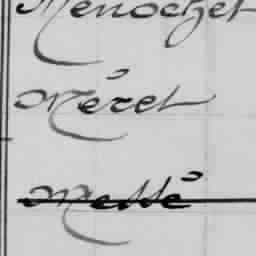 Menochet
Méret
Messé